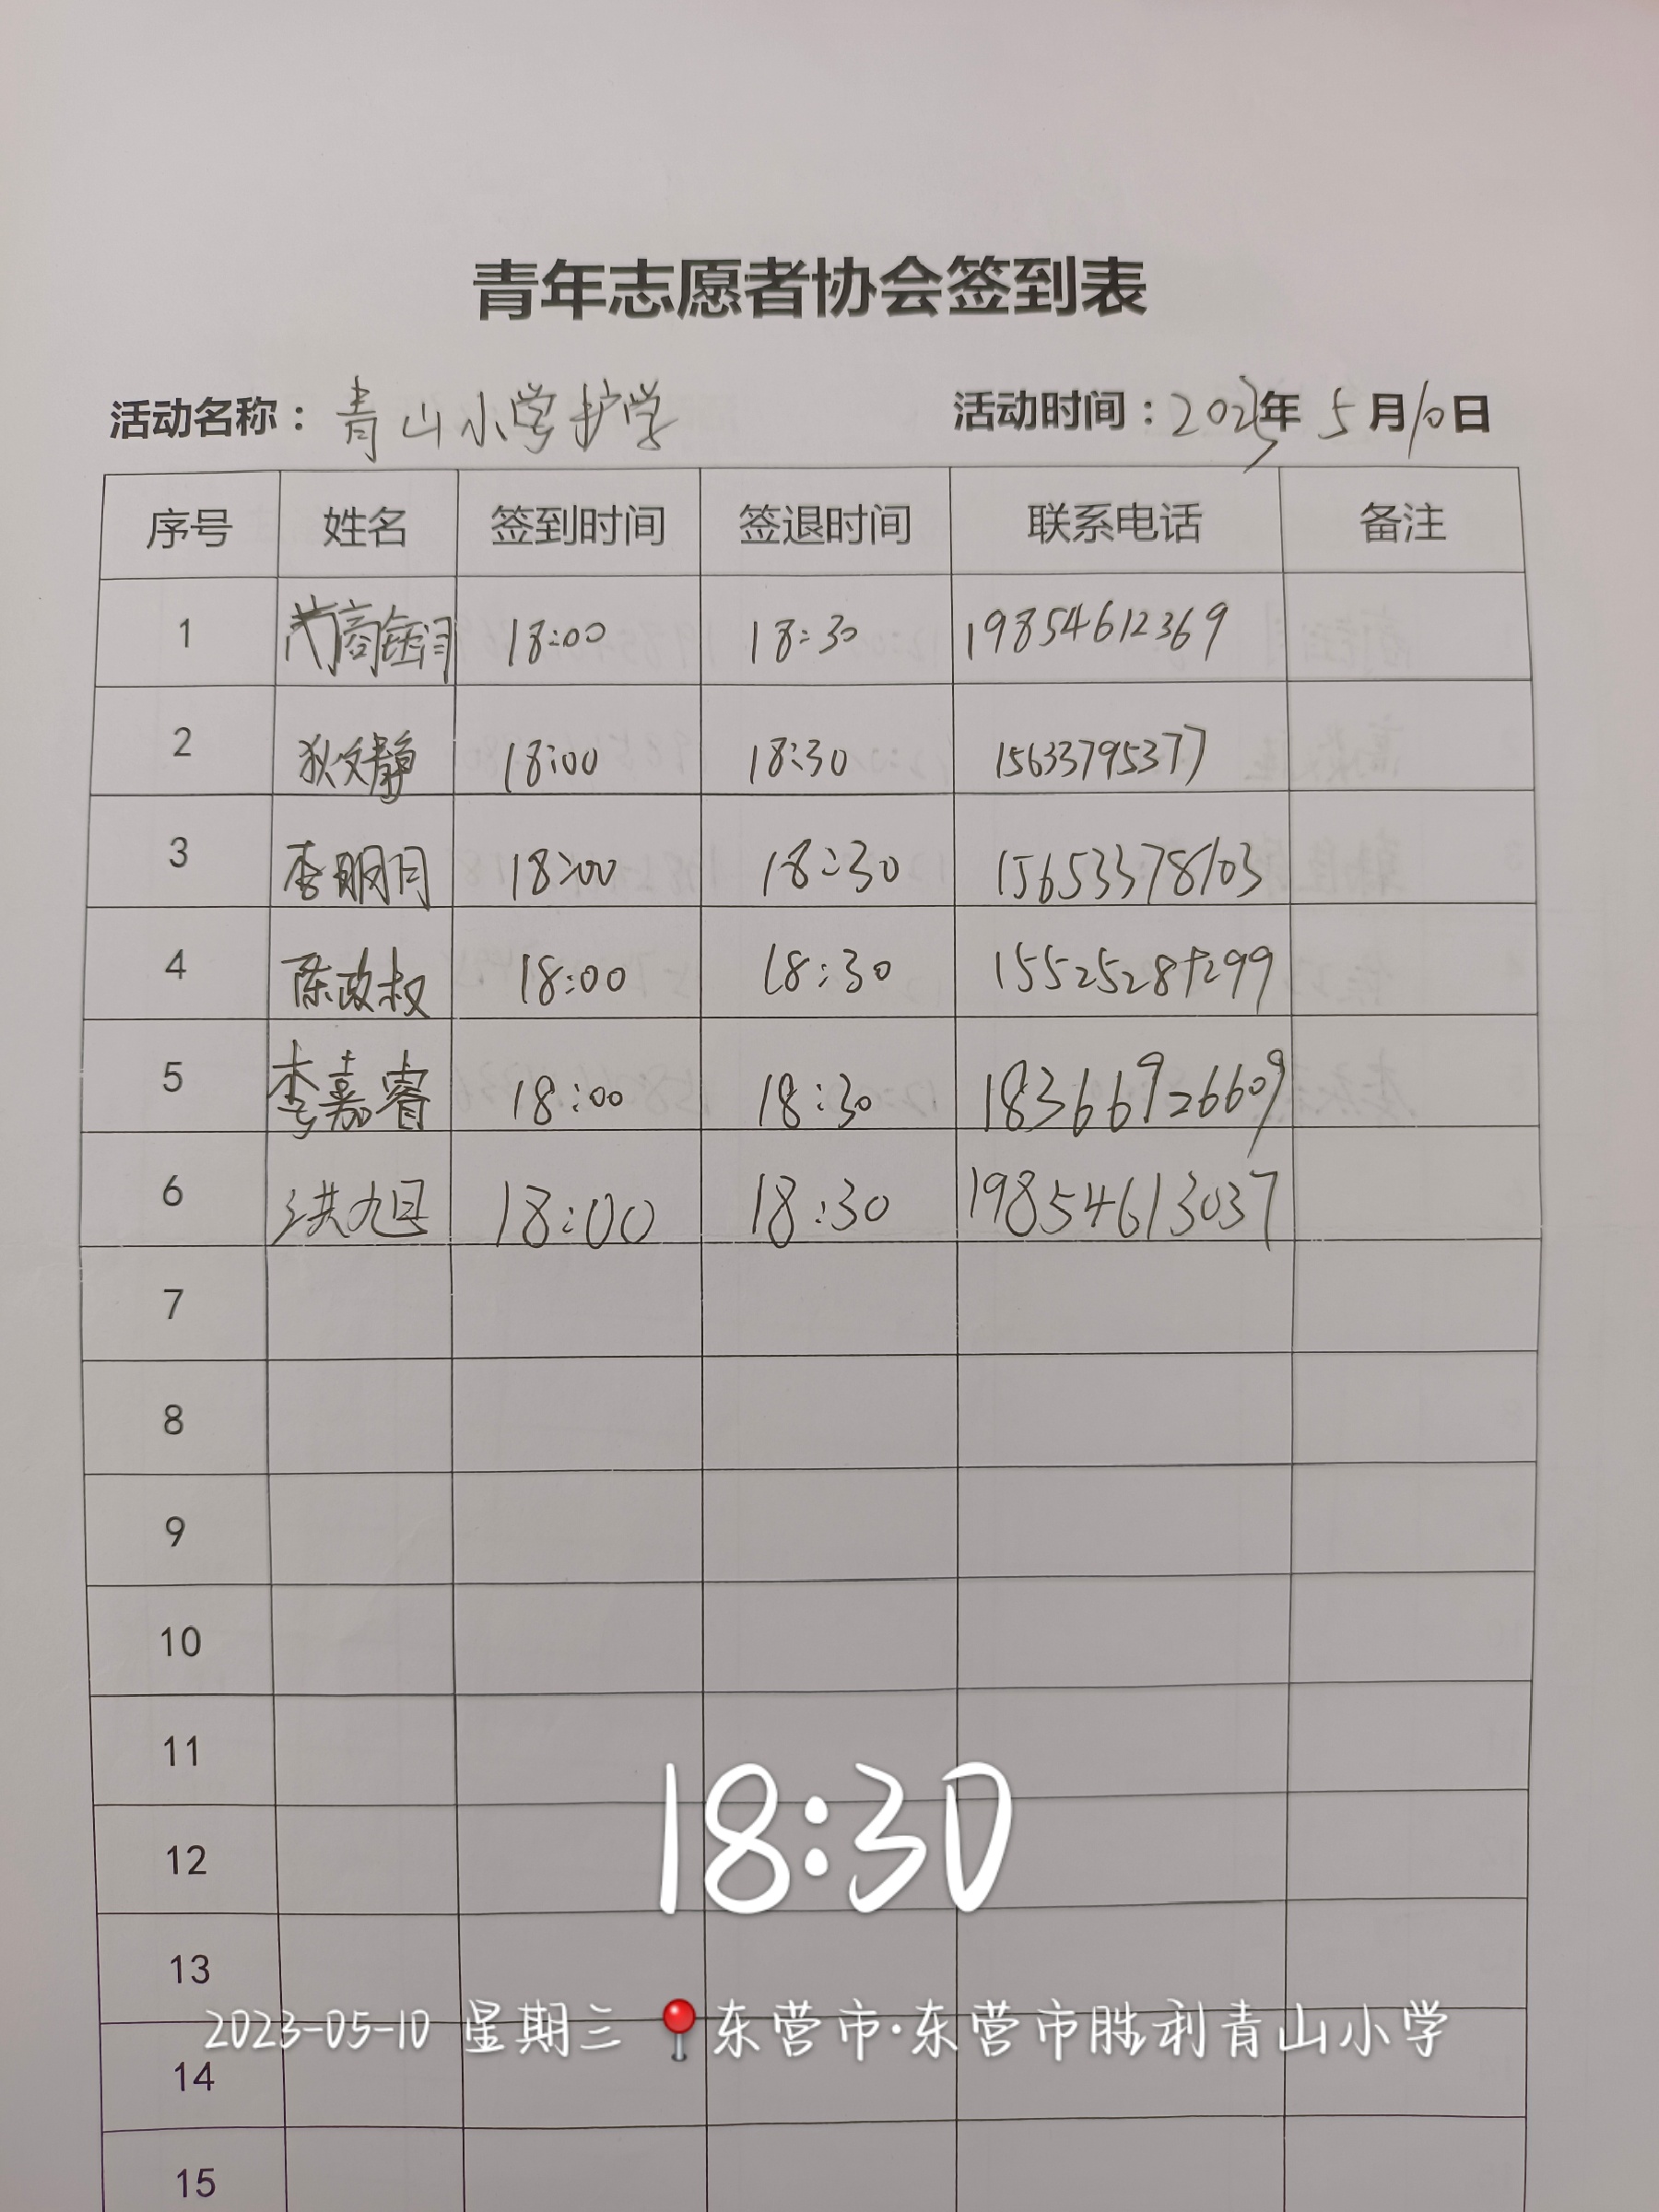 青年志愿者协会签到表
活动名称：青山小学护学 活动时间：2023年5月10日
序号 姓名 签到时间 签退时间 联系电话 备注
1 18:00 18:30 19854612369
2 狄文静 18:00 18:30 15633795377
3 李明月 18:00 18:30 15653378103
4 陈政权 18:00 18:30
5 李嘉睿 18:00 18:30 18366926609
6 洪旭 18:00 18:30 19854613037
7
8
9
10
11
12
18:30
13
2023-05-10 星期三 📍东营市·东营市胜利青山小学
14
15